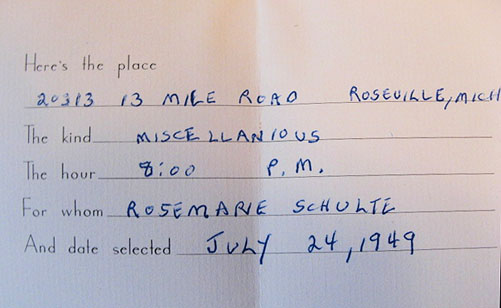 Here's the place
20313 13 MILE ROAD ROSEVILLE, MICH
The kind MISCELLANIOUS
The hour 8:00 P.M.
For whom ROSEMARIE SCHULTE
And date selected JULY 24, 1949